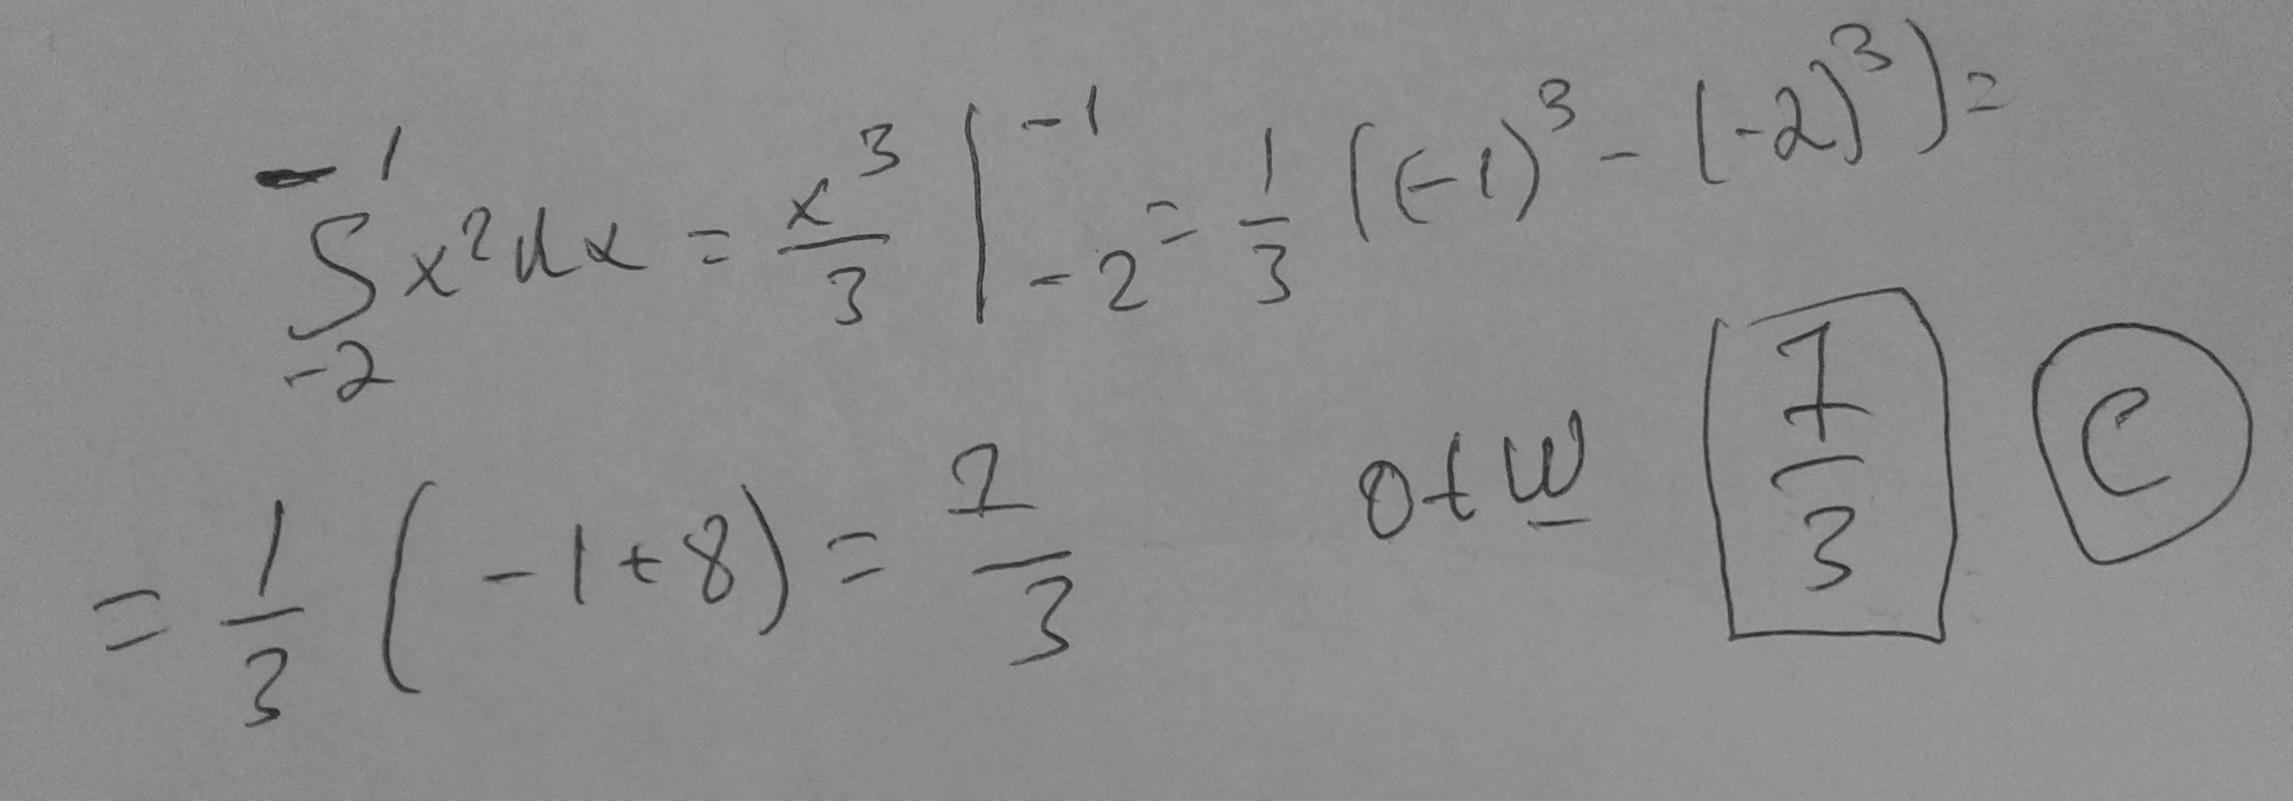 ∫_{-2}^{-1} x² dx = x³/3 |_{-2}^{-1} = 1/3 ((-1)³ - (-2)³) =
= 1/3 (-1+8) = 7/3 отв 7/3 C